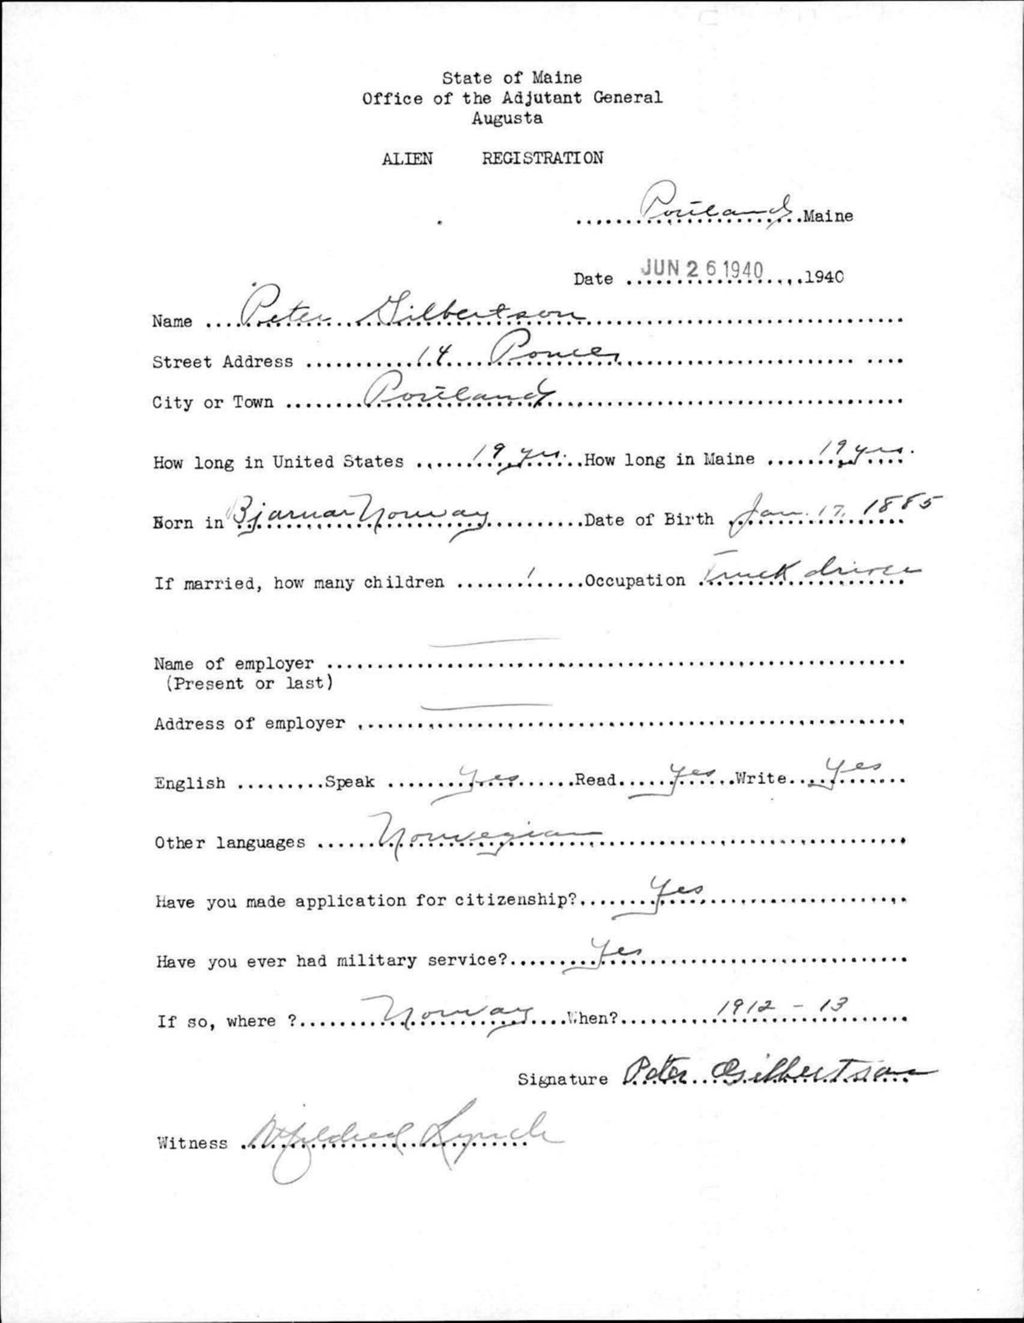 State of Maine
Office of the Adjutant General
Augusta
ALIEN REGISTRATION
Portland Maine
Date JUN 26 1940 1940
Name Peter Gilbertson
Street Address 14
City or Town Portland
How long in United States 19 yrs. How long in Maine 19 yrs.
Born in Bjarnar Norway Date of Birth Jan. 17, 1885
If married, how many children 1 Occupation Truck driver
Name of employer
(Present or last)
Address of employer
English Speak Yes Read Yes Write Yes
Other languages Norwegian
Have you made application for citizenship? Yes
Have you ever had military service? Yes
If so, where ? Norway When? 1912 - 13
Signature Peter Gilbertson
Witness Mildred Lynch